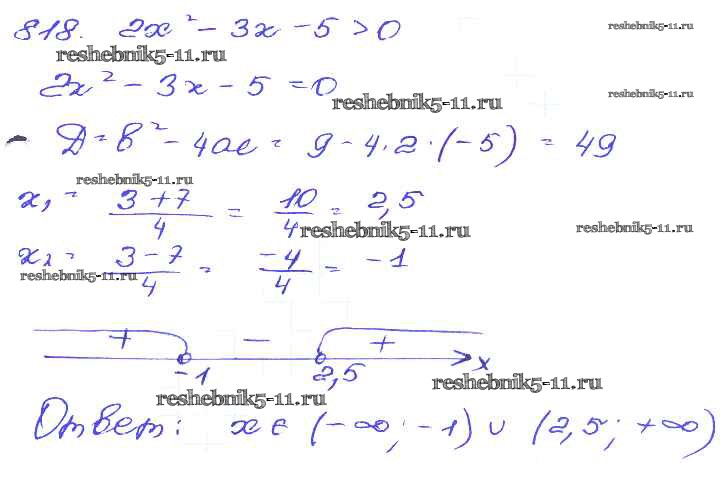 818. 2x² - 3x - 5 > 0
reshebnik5-11.ru
reshebnik5-11.ru
2x² - 3x - 5 = 0
reshebnik5-11.ru
reshebnik5-11.ru
- Д = b² - 4ac = 9 - 4·2·(-5) = 49
reshebnik5-11.ru
x₁ = (3+7)/4 = 10/4 = 2,5
reshebnik5-11.ru
reshebnik5-11.ru
x₂ = (3-7)/4 = -4/4 = -1
reshebnik5-11.ru
+ - +
-1 2,5 x
reshebnik5-11.ru
reshebnik5-11.ru
Ответ: x ∈ (-∞; -1) ∪ (2,5; +∞)